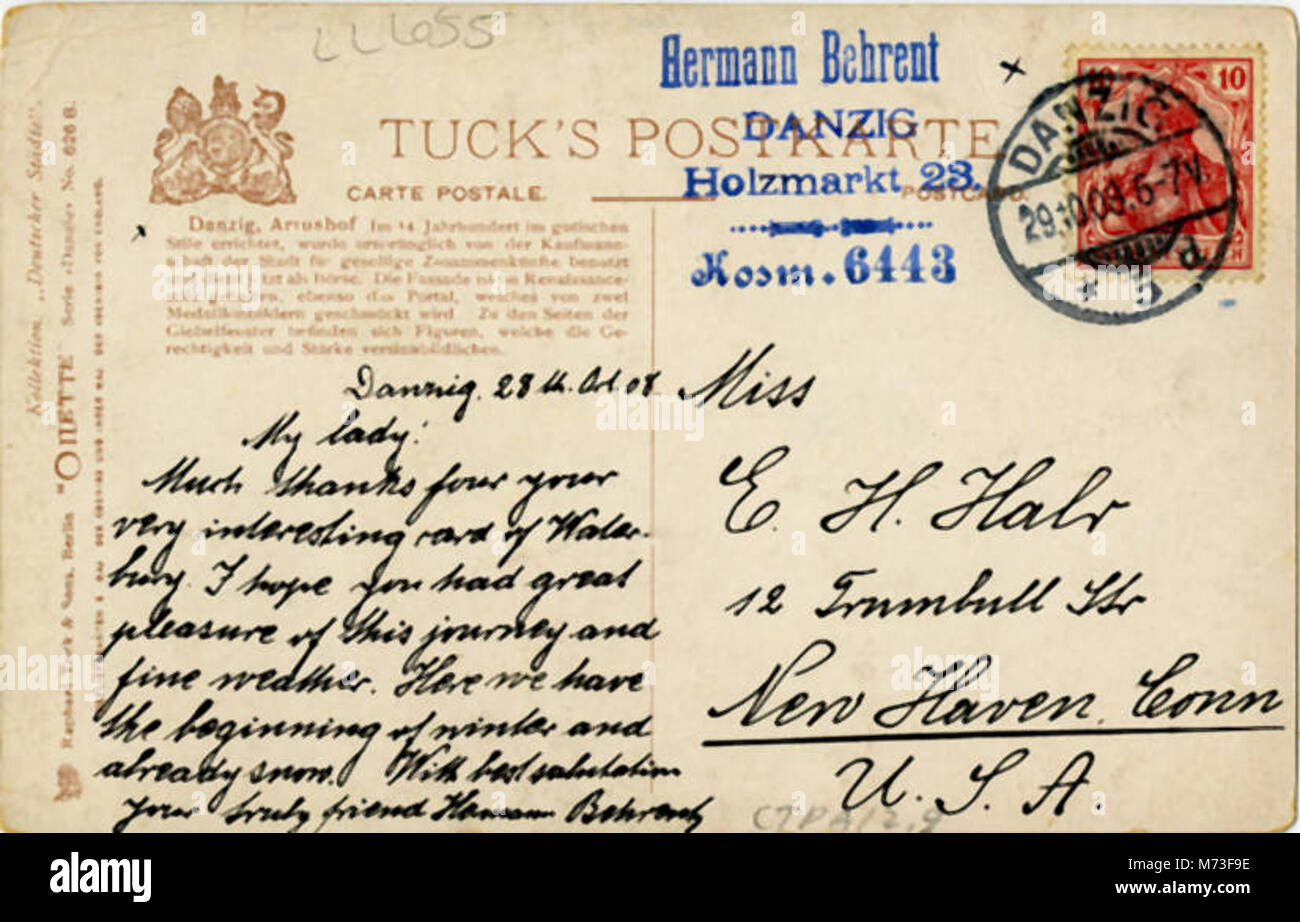 LL655
Hermann Behrent
DANZIG
Holzmarkt 23.
Kosm. 6443
TUCK'S POSTKARTE
CARTE POSTALE.
POSTCARD.
10 10
DANZIG
29.10.09.6-7V.
Kollektion „Deutscher Städte"
Raphael Tuck & Sons, Berlin "OILETTE" Serie «Danzig» No. 626 B.
Danzig, Artushof Im 14 Jahrhundert im gotischen
Stile errichtet, wurde ursprünglich von der Kaufmann-
schaft der Stadt für gesellige Zusammenkünfte benutzt
und dient jetzt als Börse. Die Fassade
ebenso das Portal, welches von zwei
Medaillonbildern geschmückt wird Zu den Seiten der
Giebelfenster befinden sich Figuren, welche die Ge-
rechtigkeit und Stärke versinnbildlichen.
Danzig, 28th. Oct. 08.
My lady!
Much thanks four your
very interesting card of Water-
bury. I hope you had great
pleasure of this journey and
fine weather. Here we have
the beginning of winter and
already snow. With best salutation
your truly friend Hermann Behrent
Miss
E. H. Halr
12 Trumbull Str
New Haven. Conn
U. S. A
alamy
alamy stock photo
M73F9E
www.alamy.com